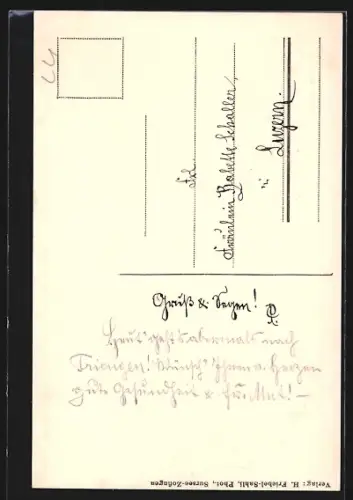 Frl.
Fräulein Babette Schaller,
in
Luzern.
Gruß & Segen!
Heut' geht's abermals nach
Triengen! Wünsch' Ihnen v. Herzen
gute Gesundheit & Mut! —
Verlag: H. Friebel-Sahli, Phot., Sursee-Zofingen